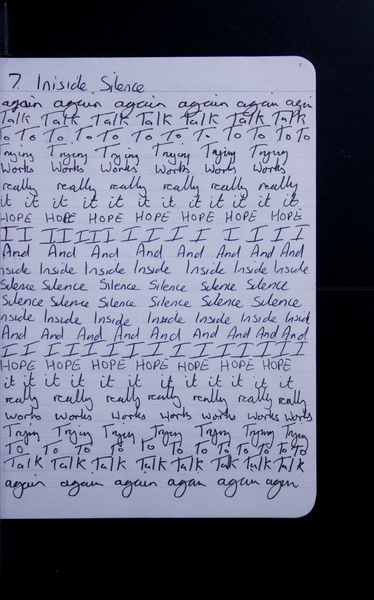 7. Iniside Silence
again again again again again again
Talk Talk Talk Talk Talk Talk Talk
To To To To To To To To To To To
Trying Trying Trying Trying Trying Trying
Works Works Works Works Works Works
really really really really really really
it it it it it it it it it it it it
HOPE HOPE HOPE HOPE HOPE HOPE HOPE
I I I I I I I I I I I I I
And And And And And And And And
nside Inside Inside Inside Inside Inside Inside
Silence Silence Silence Silence Silence Silence
Silence Silence Silence Silence Silence Silence
nside Inside Inside Inside Inside Inside Insid
And And And And And And And And And
I I I I I I I I I I I I I I
HOPE HOPE HOPE HOPE HOPE HOPE HOPE
it it it it it it it it it it it it
really really really really really really really
works works works works works works works
Trying Trying Trying Trying Trying Trying Trying
To To To To To To To To To To To
Talk Talk Talk Talk Talk Talk Talk Talk
again again again again again again